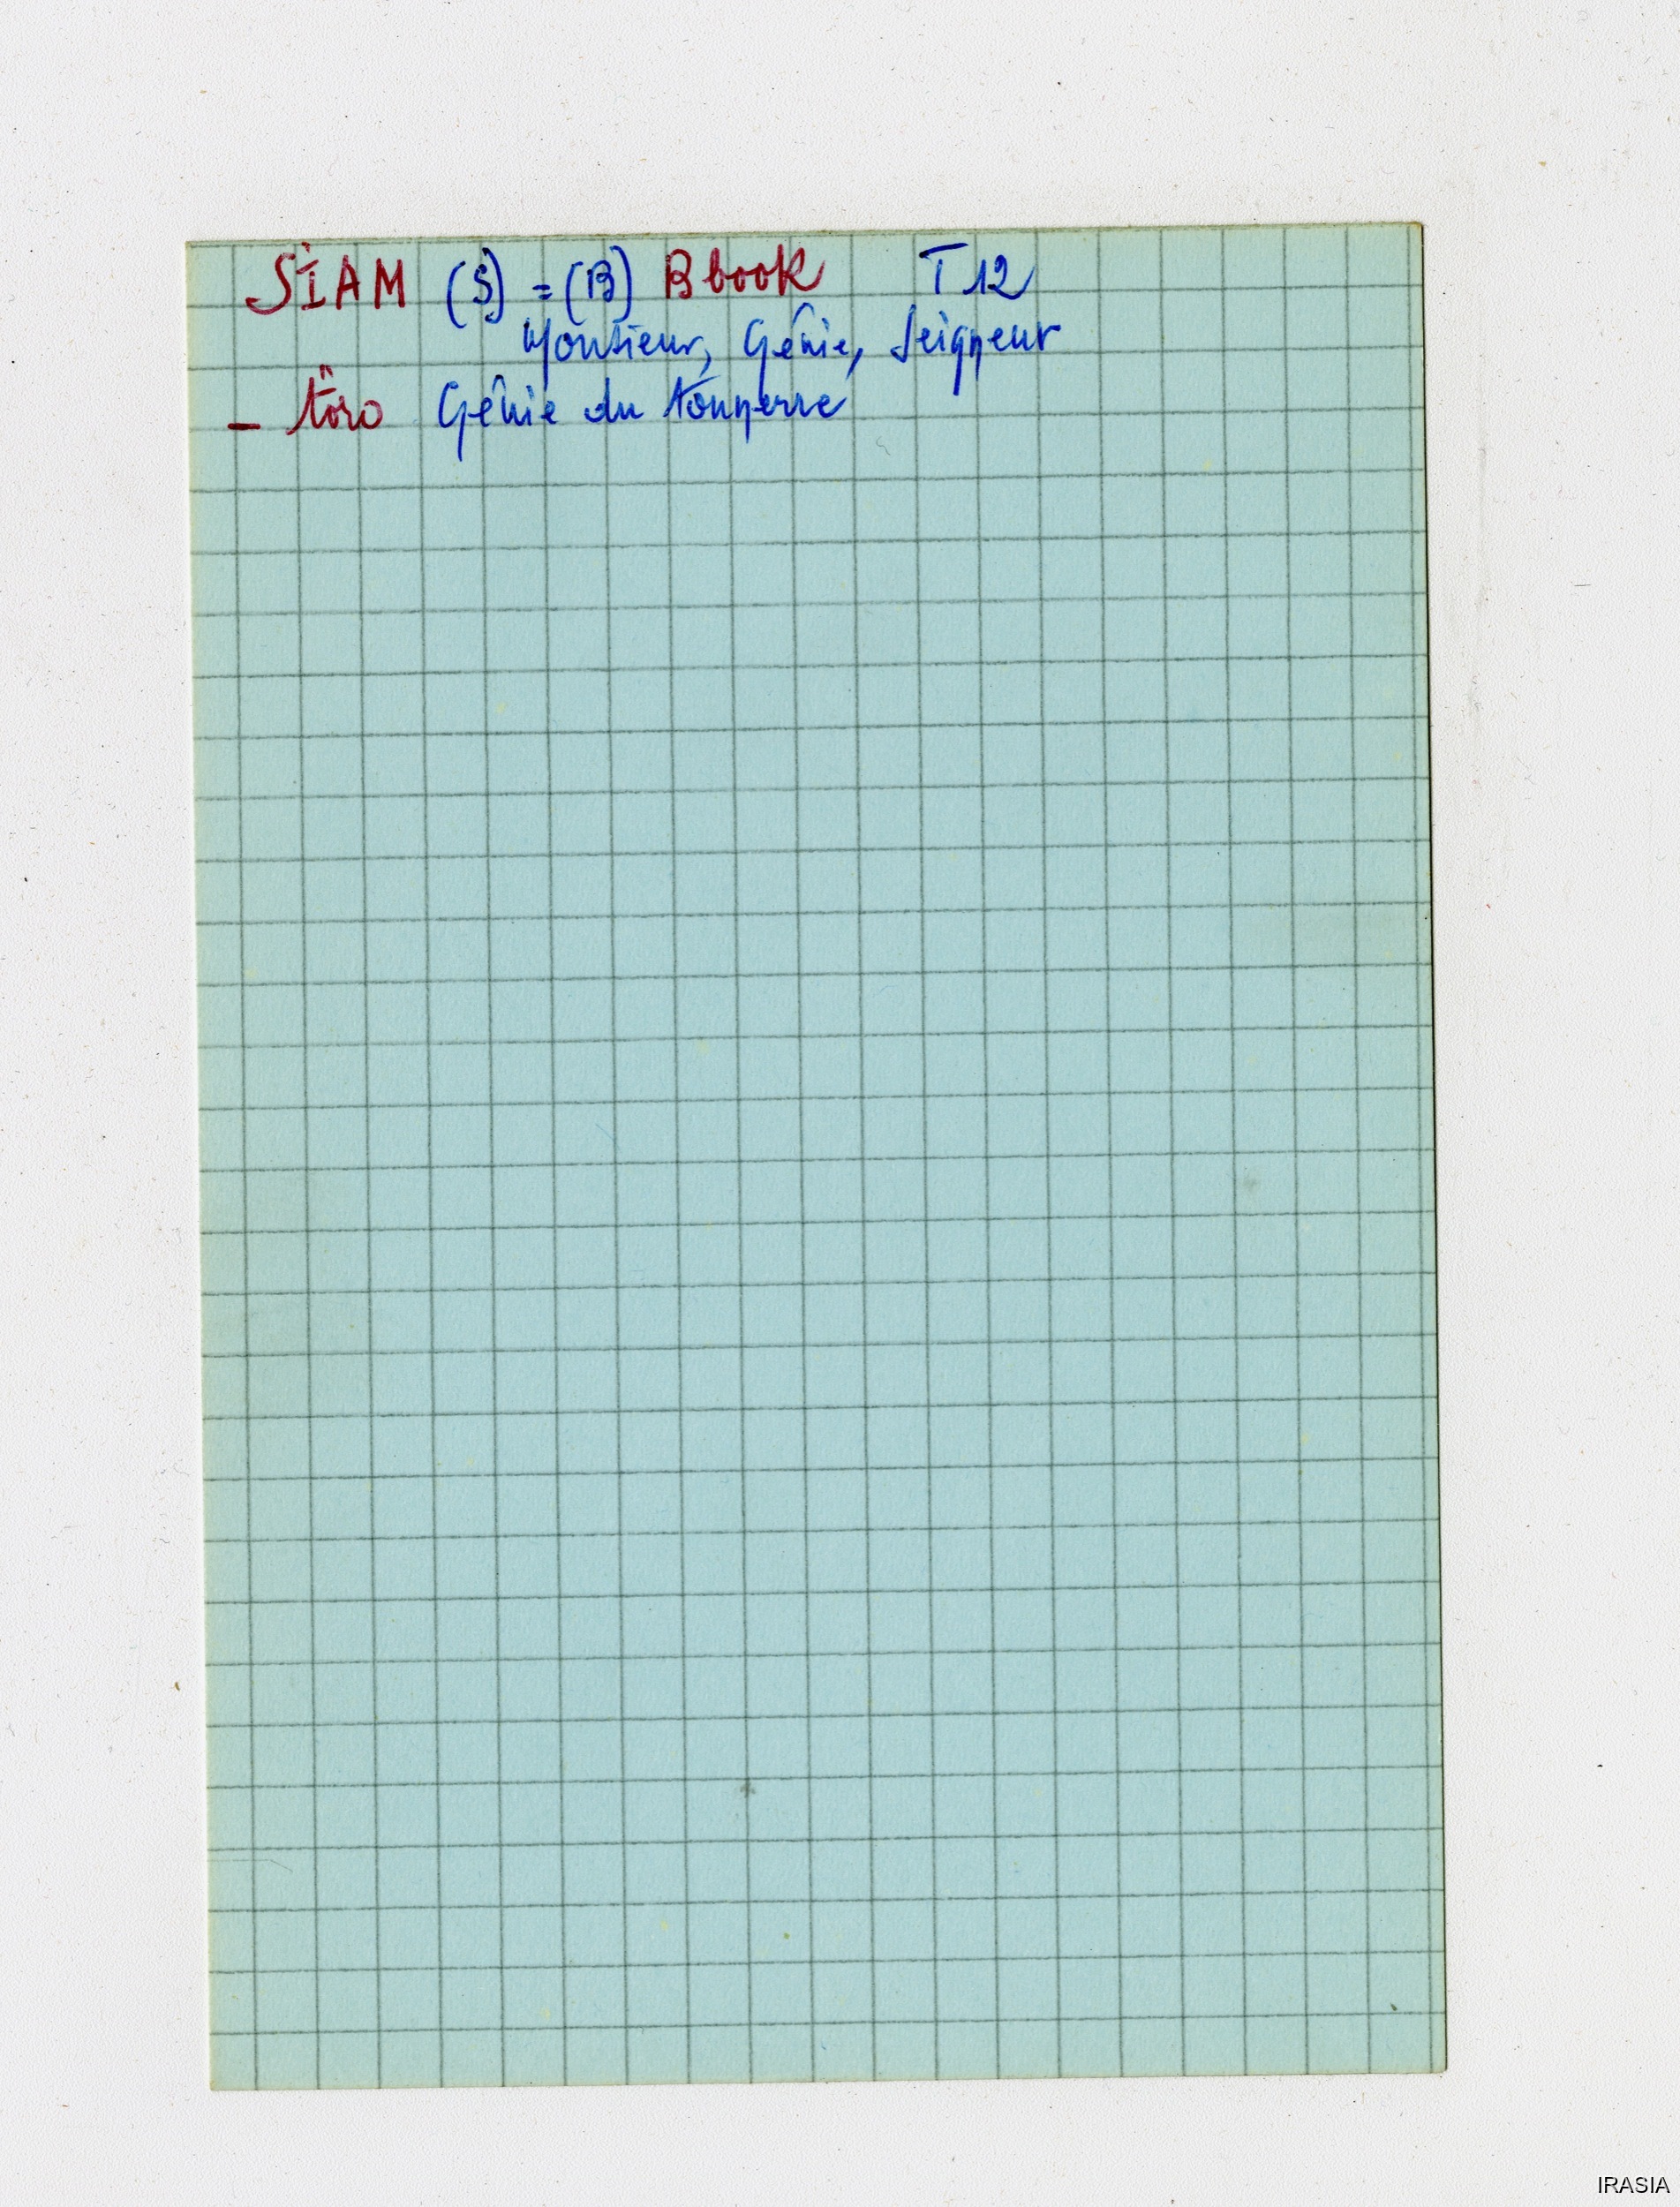 SIAM (S) = (B) Bbook T12
Monsieur, Génie, Seigneur
– töro Génie du tonnerre
IRASIA